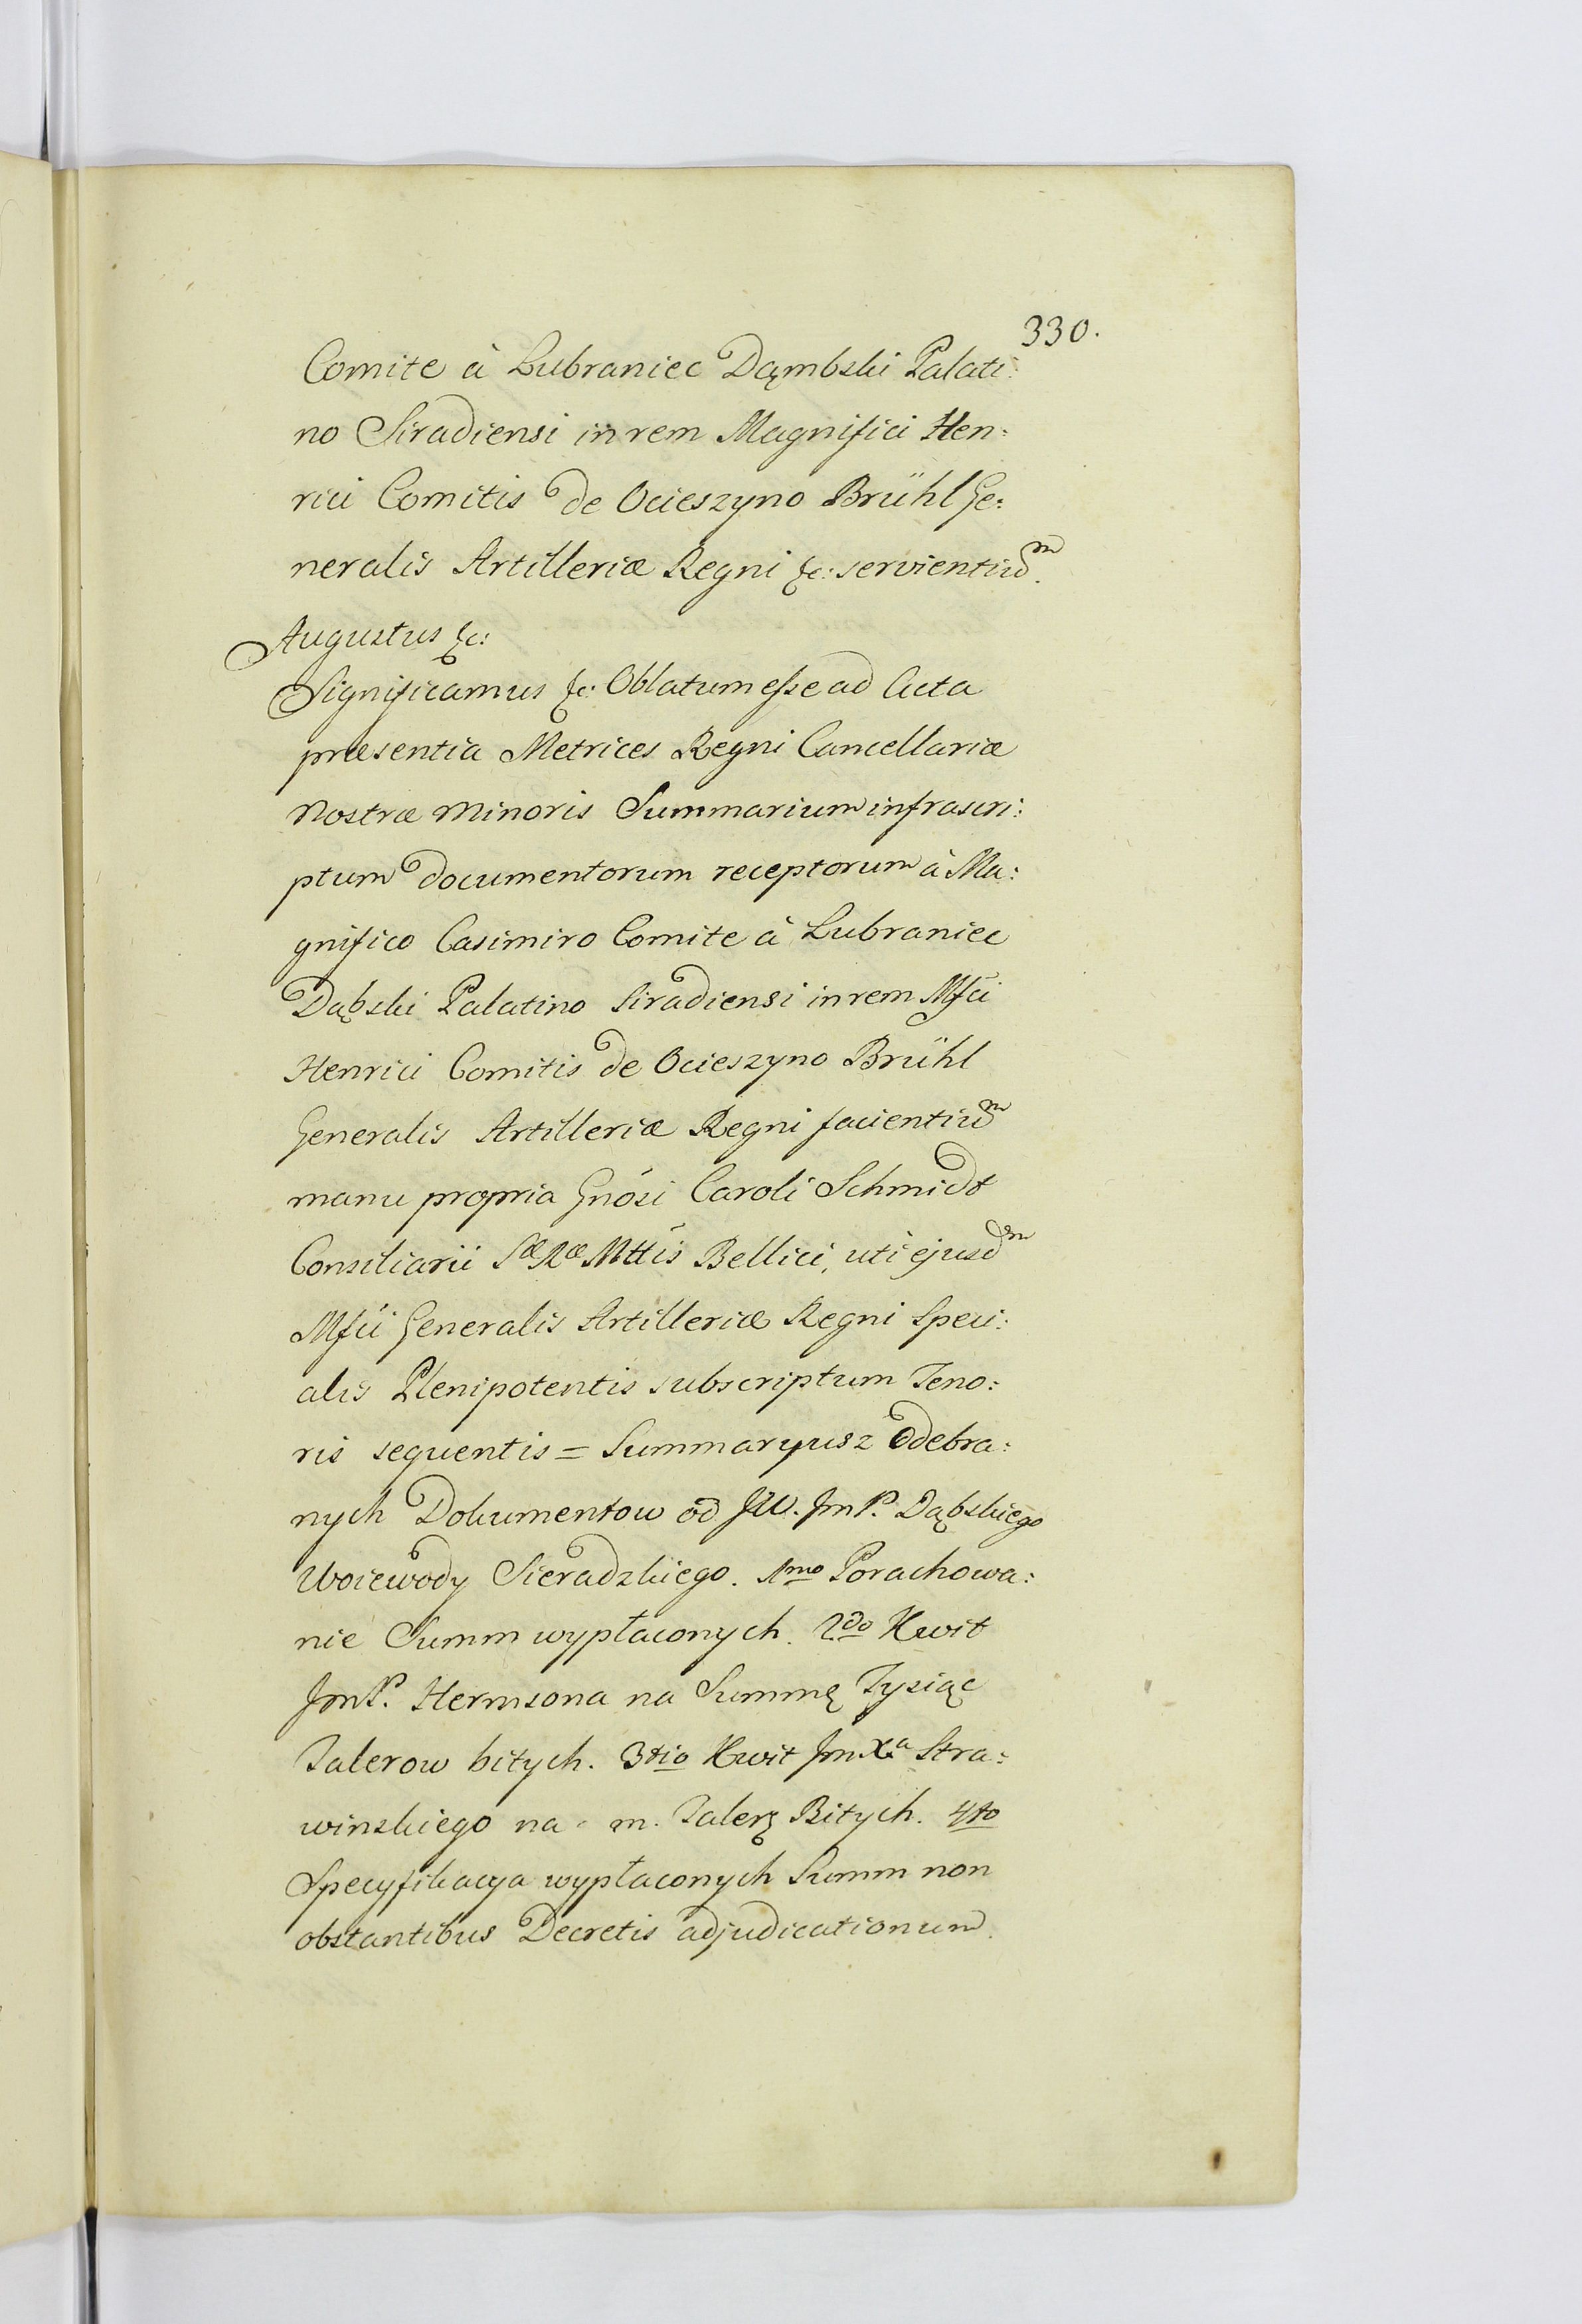 330.
Comite à Lubraniec Dąmbski Palati:
no Siradiensi in rem Magnifici Hen:
rici Comitis de Ocieszyno Brühl Ge:
neralis Artilleriæ Regni &c: servientiũm.
Augustus &c:
Significamus &c: Oblatum esse ad Acta
præsentia Metrices Regni Cancellariæ
Nostræ Minoris Summarium infrascri:
ptum documentorum receptorum à Ma:
gnifico Casimiro Comite à Lubraniec
Dąbski Palatino Siradiensi in rem Mfci
Henrici Comitis de Ocieszyno Brühl
Generalis Artilleriæ Regni facientiũm
manu propria Gnósi Caroli Schmidt
Consiliarii Sæ Ræ Mttis Bellici, uti ejusdm
Mfci Generalis Artilleriæ Regni Speci:
alis Plenipotentis subscriptum Teno:
ris sequentis = Summaryusz odebra:
nych Dokumentow od JW. JmP. Dąbskiego
Woiewody Sieradzkiego. 1mo Porachowa:
nie Summ wypłaconych. 2do Kwit
JmP. Hermsona na Summę Tysiąc
Talerow bitych. 3tio Kwit JmXa Stra:
winskiego na m. Talerz Bitych. 4to
Specyfikacya wypłaconych Summ non
obstantibus Decretis adjudicationum.